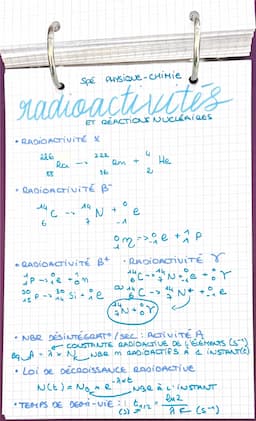 SPÉ PHYSIQUE-CHIMIE
radioactivités
ET RÉACTIONS NUCLÉAIRES
• RADIOACTIVITÉ α
²²⁶₈₈Ra → ²²²₈₆Rn + ⁴₂He
• RADIOACTIVITÉ β⁻
¹⁴₆C → ¹⁴₇N + ⁰₋₁e
¹₀n → ⁰₋₁e + ¹₁p
• RADIOACTIVITÉ β⁺ • RADIOACTIVITÉ γ
• NBR DÉSINTÉGRAT° / SEC : ACTIVITÉ A
CONSTANTE RADIOACTIVE DE L'ÉLÉMENTS (s⁻¹)
A = λ × N NBR M RADIOACTIFS À L'INSTANT(t)
• LOI DE DÉCROISSANCE RADIOACTIVE
N(t) = N₀ × e^-λxt
NBR À L'INSTANT
• TEMPS DE DEMI-VIE : t₁/₂ = ln2
(s) λ (s⁻¹)